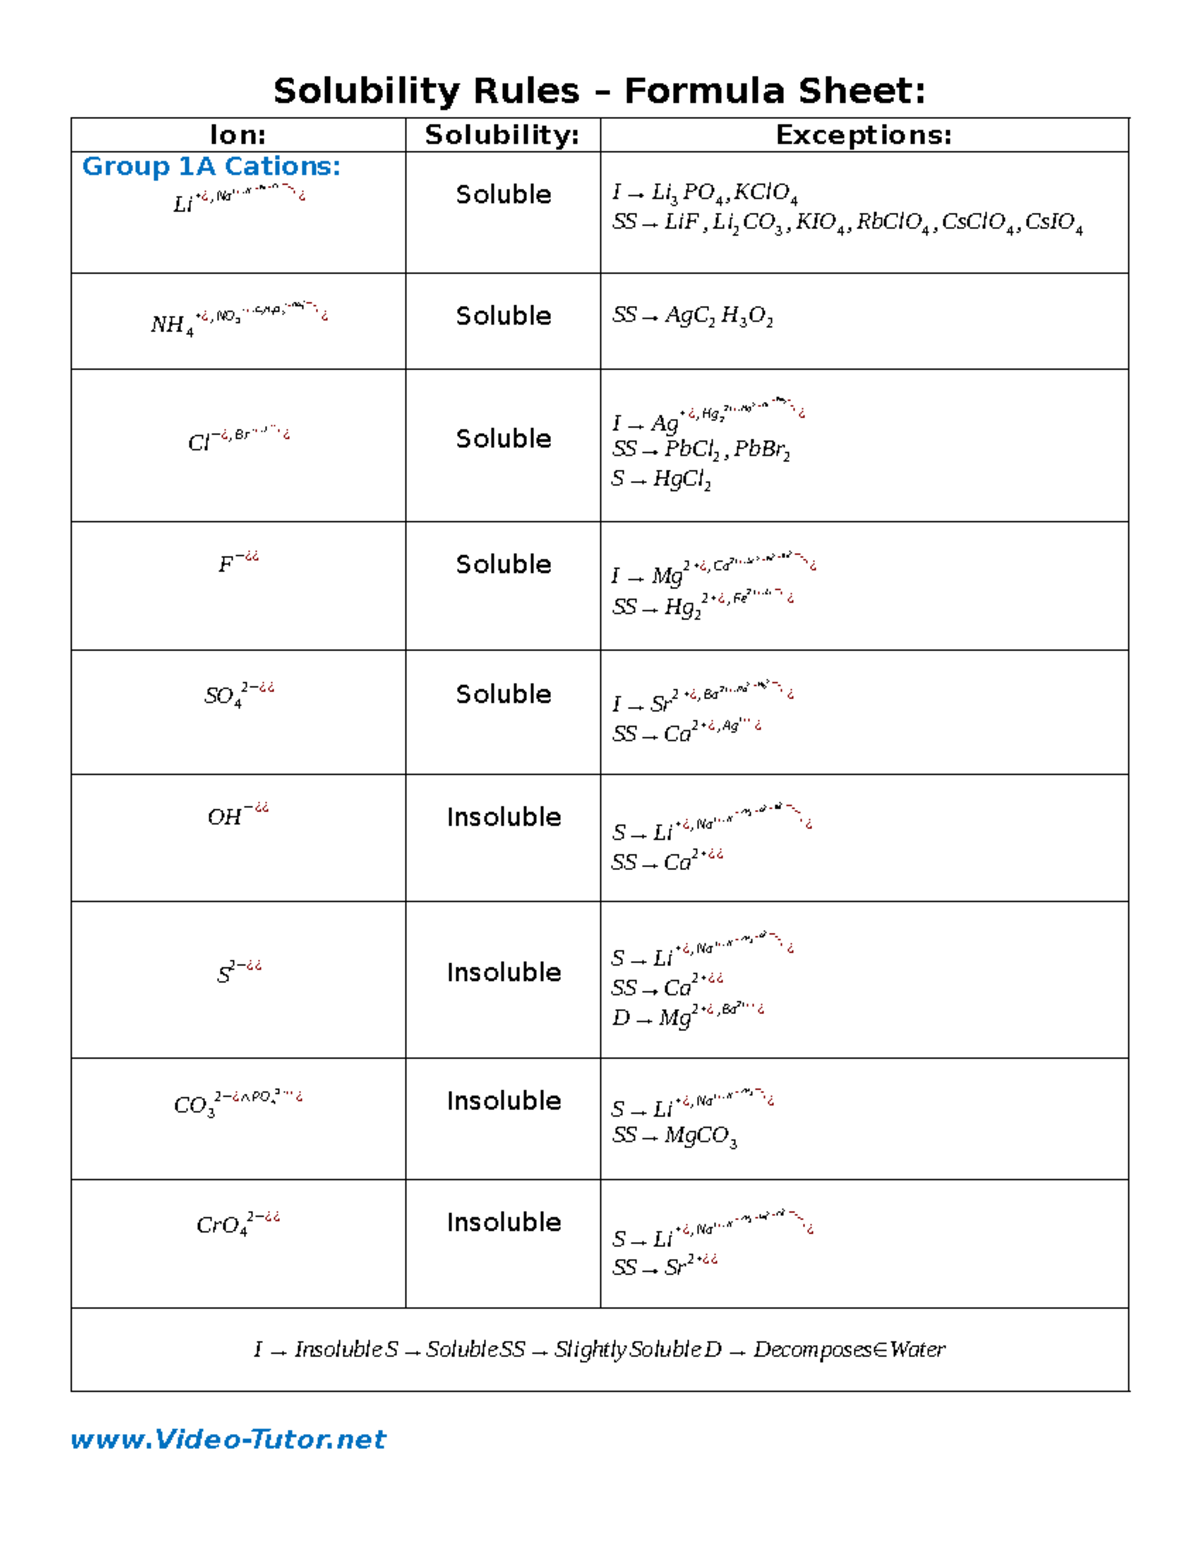 Solubility Rules – Formula Sheet:
Ion: Solubility: Exceptions:
Group 1A Cations:
Li⁺¿,Na ¿ Soluble I → Li₃PO₄, KClO₄
SS → LiF, Li₂CO₃, KIO₄, RbClO₄, CsClO₄, CsIO₄
NH₄⁺¿,NO₃ ¿ Soluble SS → AgC₂H₃O₂
Cl⁻¿,Br ¿ Soluble I → Ag⁺¿,Hg₂ ¿
SS → PbCl₂, PbBr₂
S → HgCl₂
F⁻¿¿ Soluble I → Mg²⁺¿,Ca²  ¿
SS → Hg₂²⁺¿,Fe² ¿
SO₄²⁻¿¿ Soluble I → Sr²⁺¿,Ba² ¿
SS → Ca²⁺¿,Ag ¿
OH⁻¿¿ Insoluble S → Li⁺¿,Na ¿
SS → Ca²⁺¿¿
S²⁻¿¿ Insoluble S → Li⁺¿,Na ¿
SS → Ca²⁺¿¿
D → Mg²⁺¿,Ba² ¿
CO₃²⁻¿∧PO₄³ ¿ Insoluble S → Li⁺¿,Na ¿
SS → MgCO₃
CrO₄²⁻¿¿ Insoluble S → Li⁺¿,Na ¿
SS → Sr²⁺¿¿
I → Insoluble S → Soluble SS → Slightly Soluble D → Decomposes∈Water
www.Video-Tutor.net